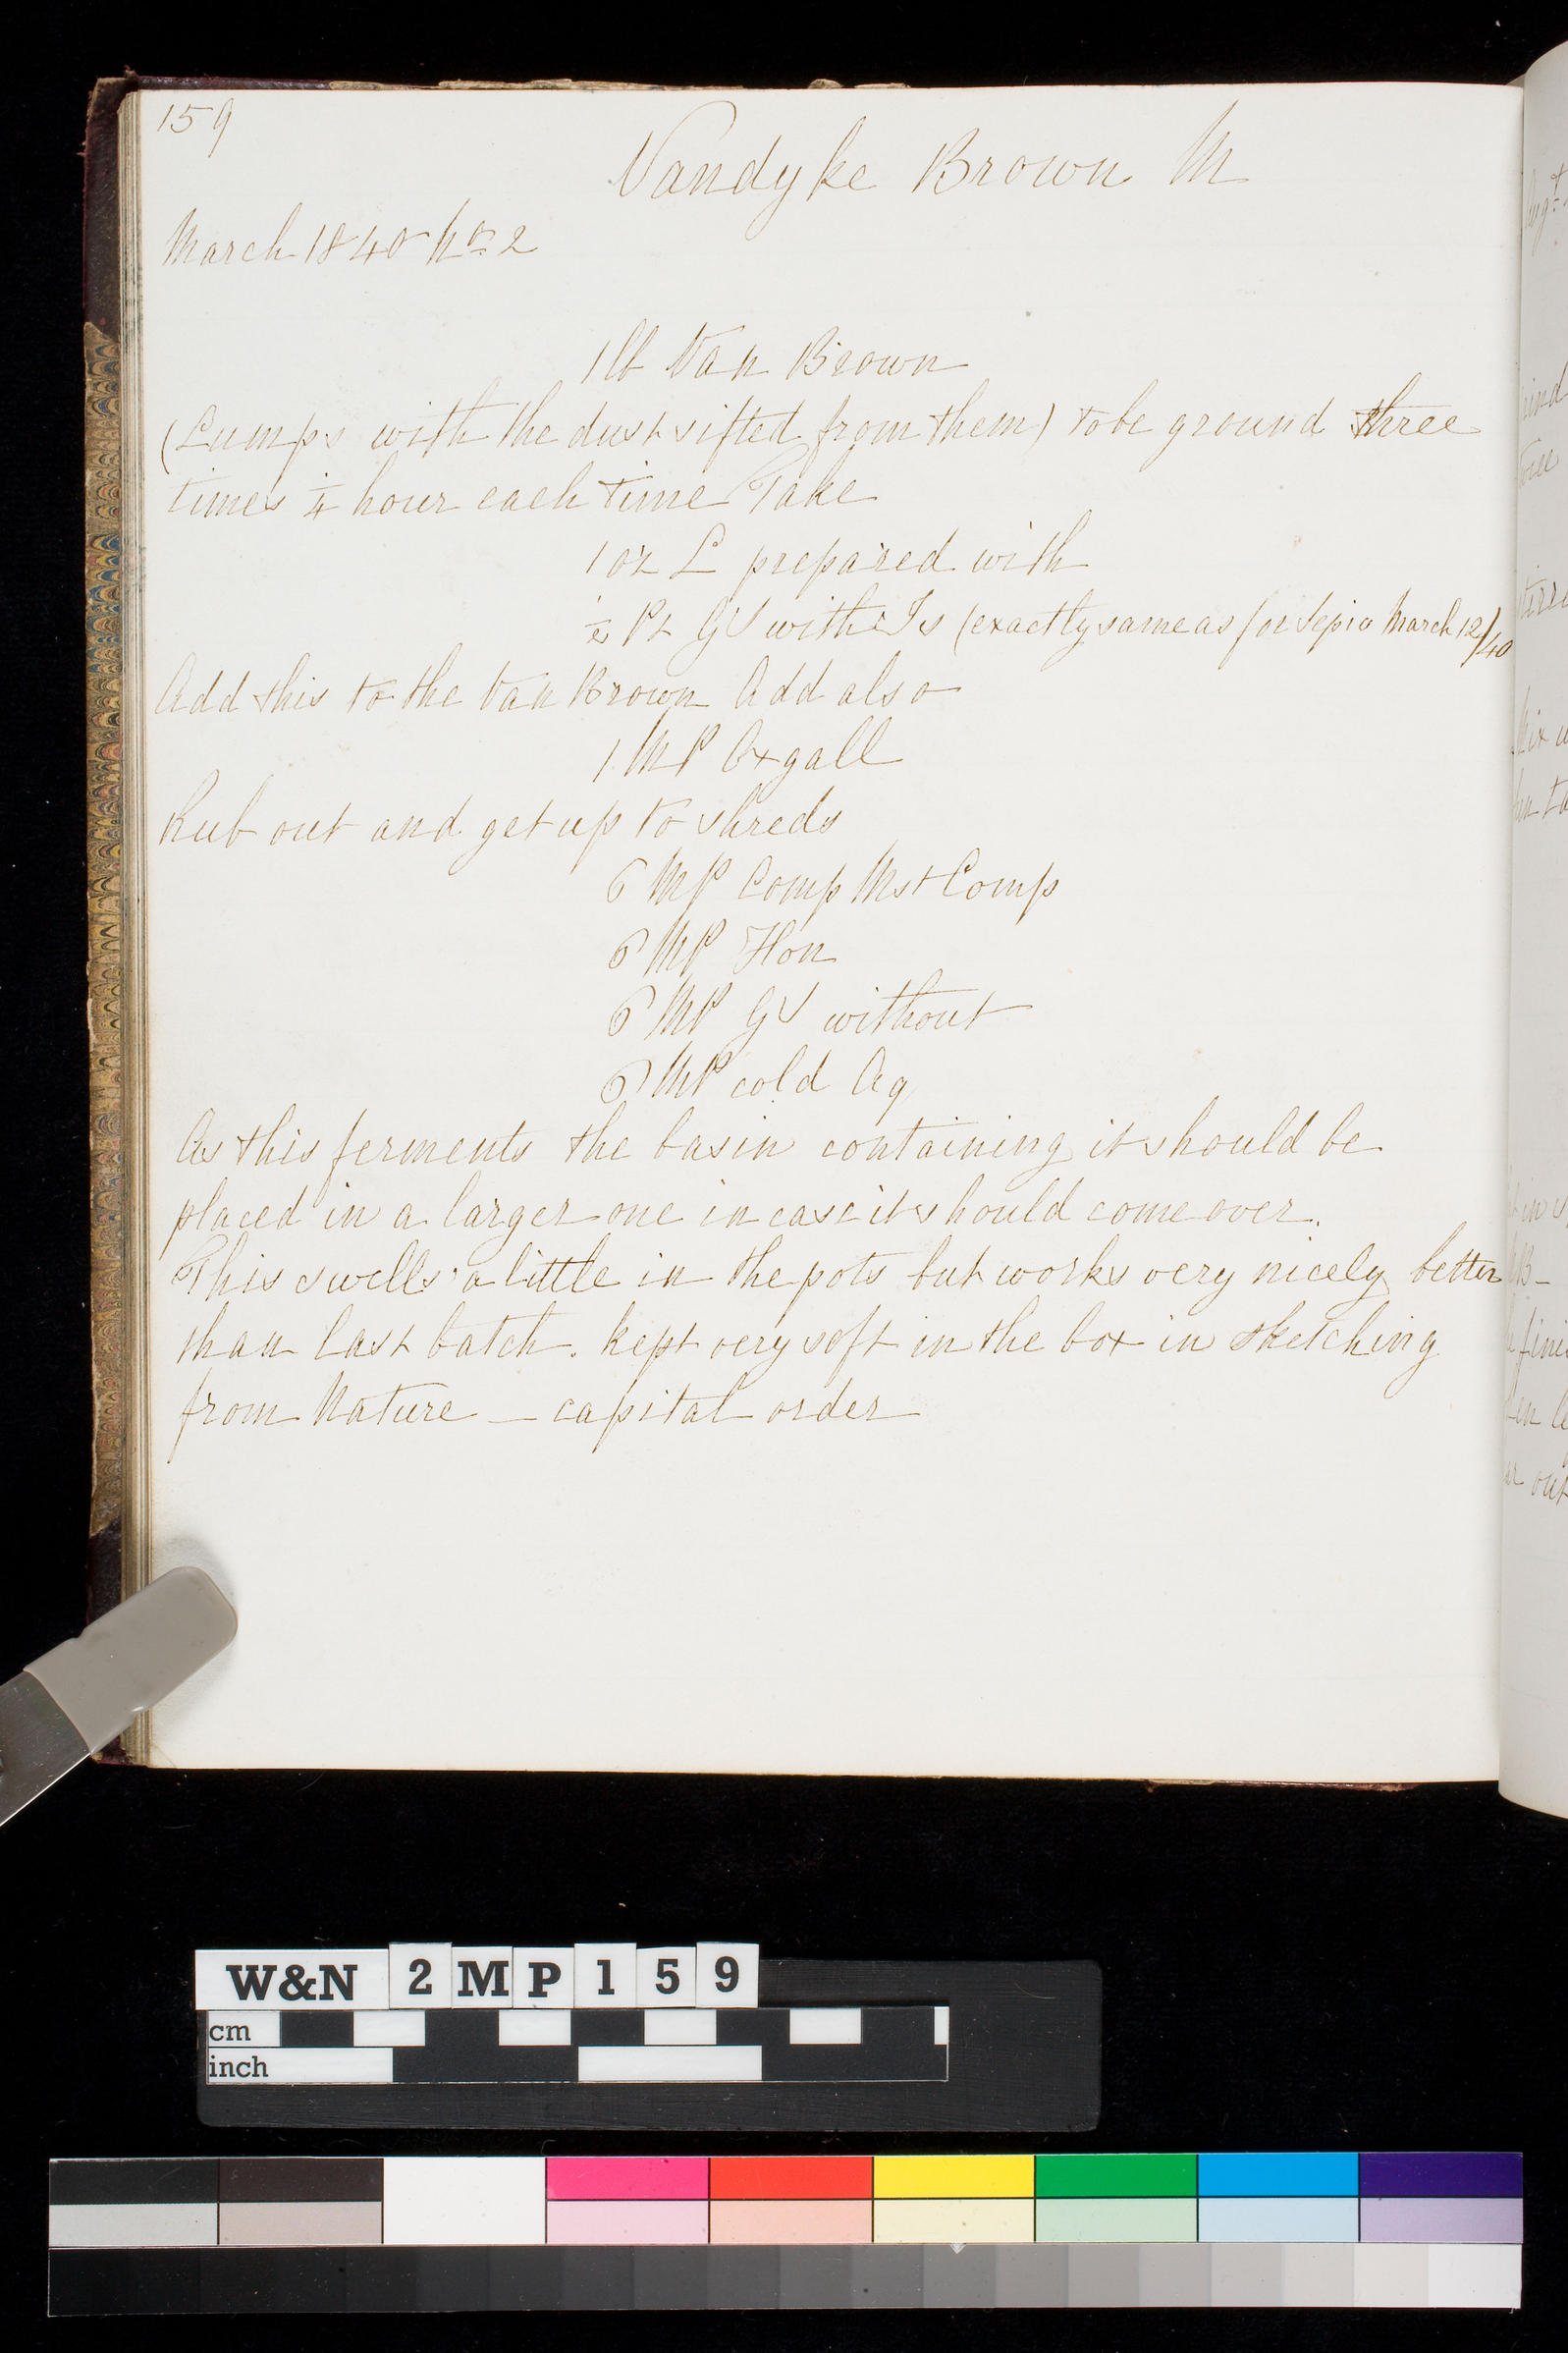 159
Vandyke Brown M
March 1840 No 2
1 lb Van Brown
(Lumps with the dust sifted from them) to be ground three
times 1/4 hour each time Take
1 oz L prepared with
1/2 Pt GV with Is (exactly same as for Sepia March 12/40
Add this to the Van Brown Add also
1 MP Oxgall
Rub out and get up to shreds
6 MP Comp Mst Comp
6 MP Hon
6 MP GV without
6 MP cold Aq
As this ferments the basin containing it should be
placed in a larger one in case it should come over.
This swells a little in the pots but works very nicely better
than last batch. kept very soft in the box in sketching
from Nature — capital order
W&N 2MP159
cm
inch